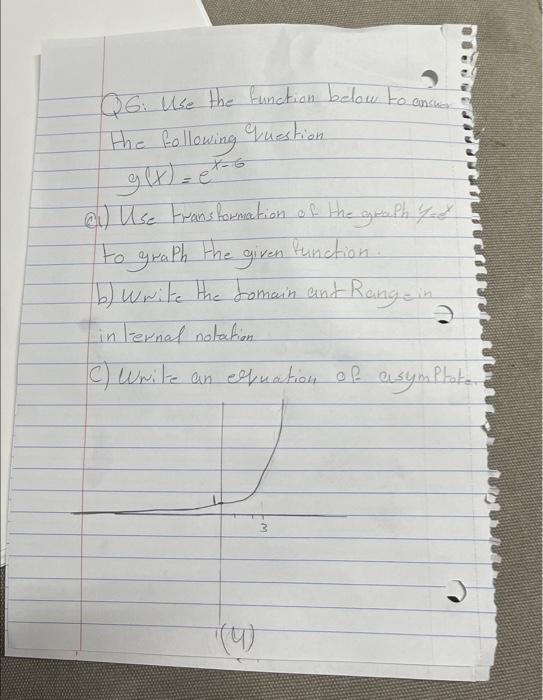 Q6: Use the function below to answer
the following question
g(x) = e^x-6
a) Use transformation of the graph y=e^x
to graph the given function.
b) Write the domain and Range in
internal notation
C) Write an equation of asymptote.
1
3
(4)